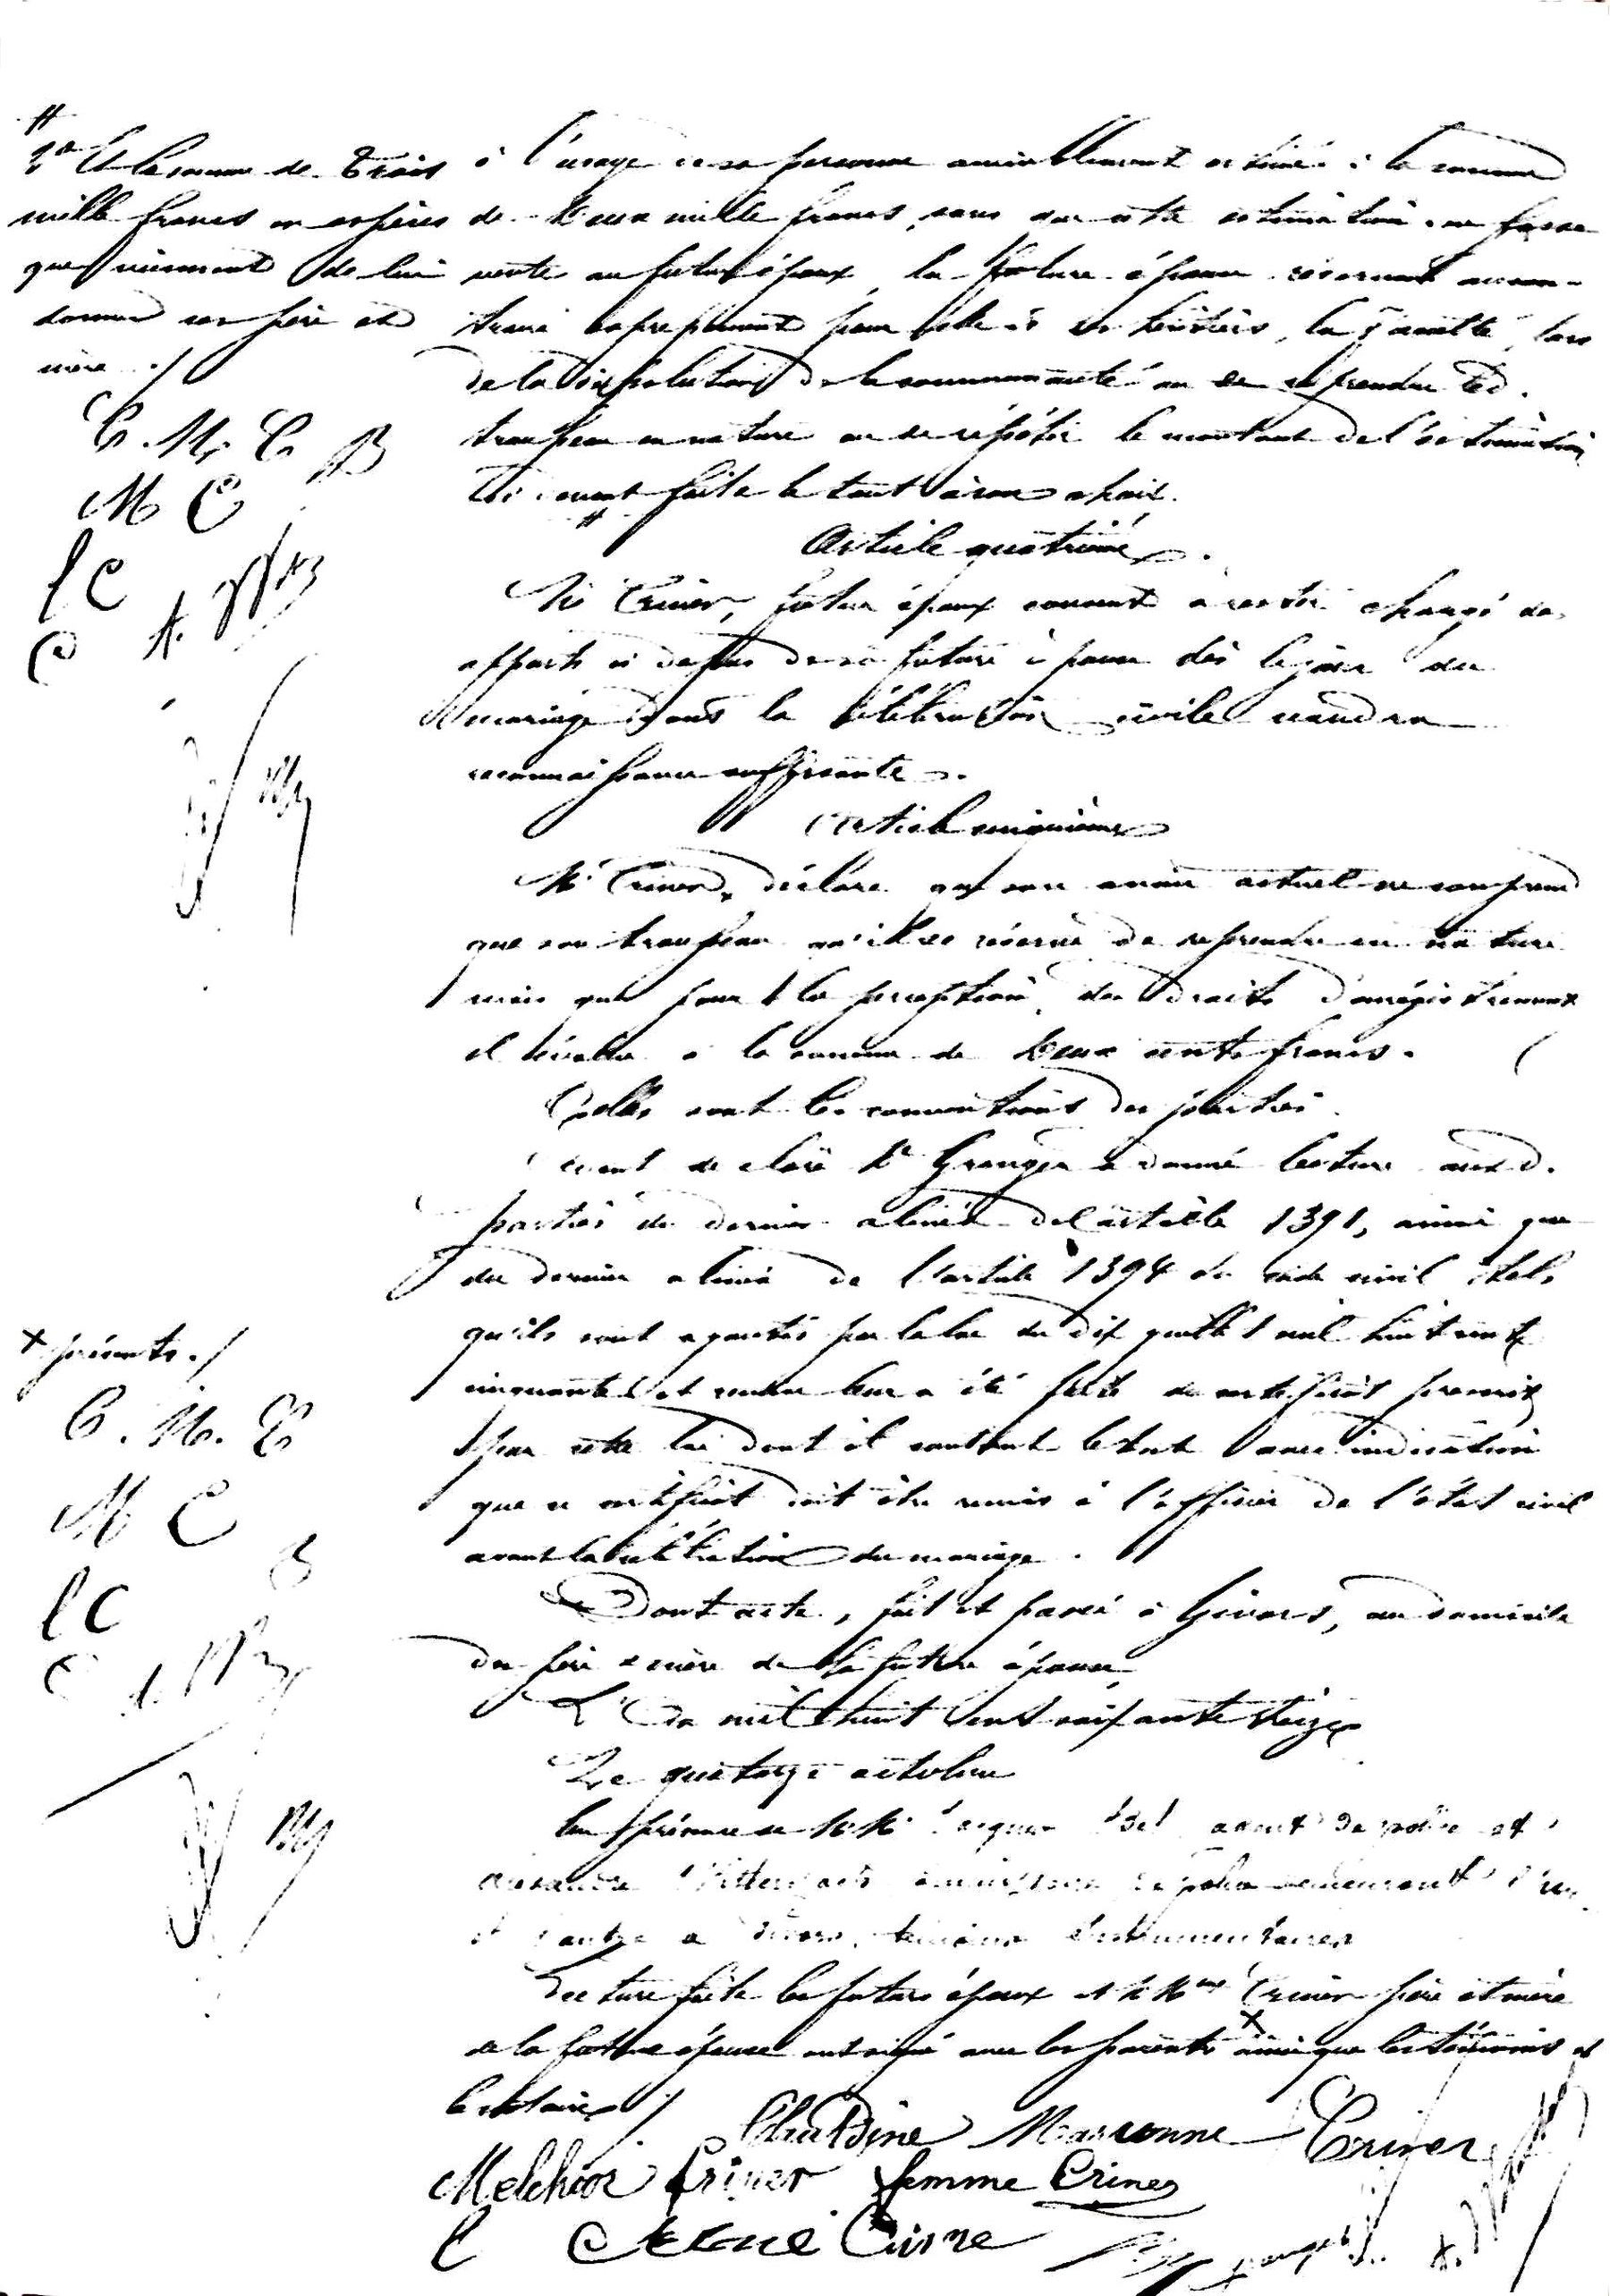 2° Et la somme de trois
mille francs en espèces
que viennent de lui
donner ses père et
mère ./
C. M. C. B
M C
C
à l'usage de sa personne amiablement estimé à la somme
de deux mille francs, sans que cette estimation en fasse
vente au futur époux, la future épouse réservant au con-
traire expressément pour elle et ses héritiers, la faculté, lors
de la dissolution de la communauté ou de reprendre led.
trousseau en nature ou de répéter le montant de l'estimation
ci-avant faite le tout à son choix.
Article quatrième.
Mr Criner, futur époux consent à rester chargé des
apports ci-dessus de sa future épouse dès le jour du
mariage dont la célébration civile vaudra
reconnaissance suffisante.
Article cinquième
Mr Criner, déclare que son avoir actuel ne comprend
que son trousseau qu'il se réserve de reprendre en nature
mais que pour la perception des droits d'enregistrement
il évalue à la somme de deux cents francs.
Telles sont les conventions des parties.
Avant de clore Me Granger a donné lecture aux d.
parties du dernier alinéa de l'article 1391, ainsi que
du dernier alinéa de l'article 1394 du code civil tels
qu'ils sont ajoutés par la loi du dix juillet mil huit cent
cinquante et remise leur a été faite du certificat prescrit
par cette loi dont il contient le texte avec indication
que ce certificat doit être remis à l'officier de l'état civil
avant la célébration du mariage.
Dont acte, fait et passé à Givors, au domicile
des père et mère de la future épouse
L'An mil huit cent soixante treize
Le quatorze octobre
En présence de MM. agent de police et
et l'autre à Givors, témoins instrumentaires
Lecture faite les futurs époux et M Mme Criner père et mère
de la future épouse ont signé avec les parents X ainsi que les témoins et
le notaire ./
X présents ./
C. M. C
M C
C
Claudine Marconne Criner
Melchior Criner femme Criner
Criner